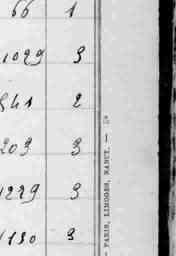 66 1
1029 3
541 2
203 3
1229 3
1130 3
- PARIS, LIMOGES, NANCY. -